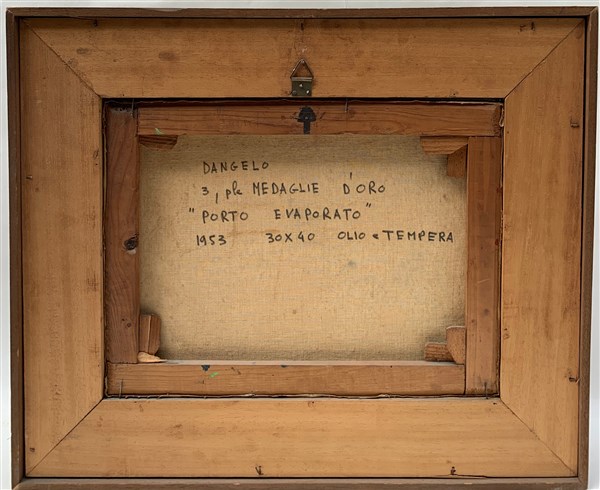 DANGELO
3, ple MEDAGLIE D'ORO
"PORTO EVAPORATO"
1953 30X40 OLIO e TEMPERA